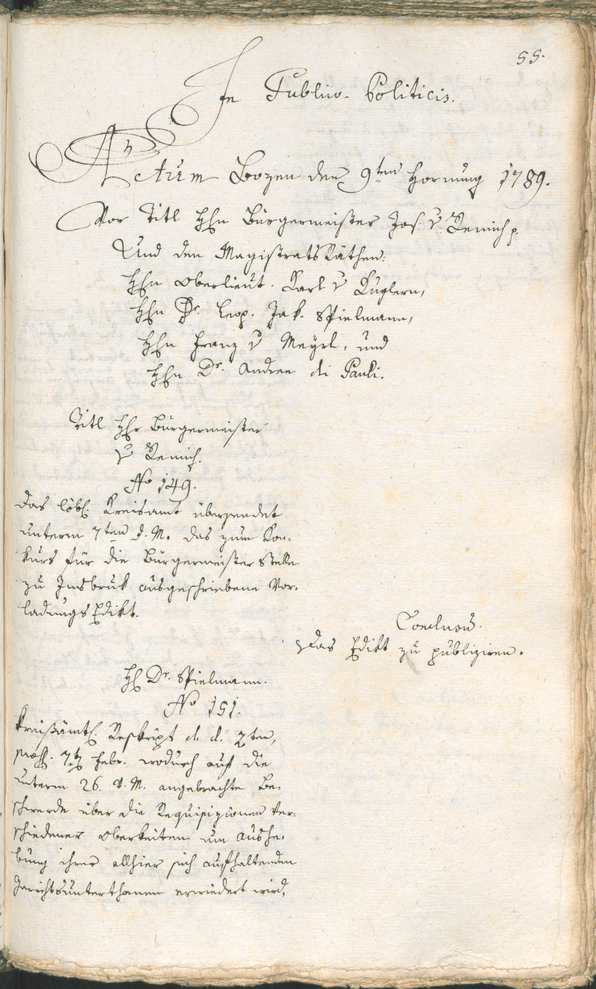 55.
In Publico-Politicis.
Actum Bozen den 9ten Hornung 1789.
Vor Titl Hhn Bürgermeister Jos. v Remich p
Und den Magistrats Räthen
Hhn Oberlieut. Karl v Kuglern,
Hhn Dr. Leop. Jak. Spielmann,
Hhn Franz v Mayrl, und
Hhn Dr. Andree di Pauli.
Titl Hhr Bürgermeister
v Remich.
No 149.
Das löbl. Kreisamt übersendet
unterm 7ten d. M. das zum Kon-
kurs für die Bürgermeister Stelle
zu Innsbruk ausgeschriebene Vor-
ladungs Edikt.
Conclusum.
Das Edikt zu publiziren.
Hh Dr. Spielmann.
No 151.
Kreisämtl. Reskript d. d. 2ten,
7ten Febr. wodurch auf die
unterm 26. v. M. angebrachte Be-
schwerde über die Requisizionen ver-
schiedener Oberkeiten um Aushe-
bung ihrer allhier sich aufhaltenden
Gerichtsunterthanen erwiedert wird,